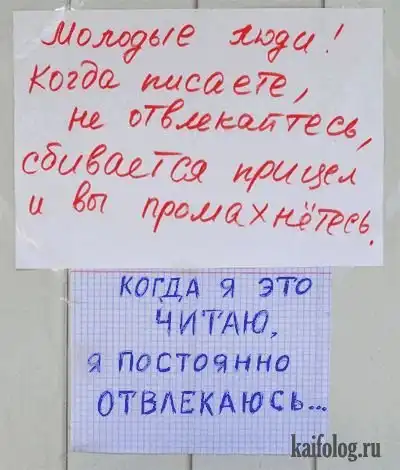 Молодые люди!
Когда писаете,
не отвлекайтесь,
сбивается прицел
и вы промахнётесь.
КОГДА Я ЭТО
ЧИТАЮ,
Я ПОСТОЯННО
ОТВЛЕКАЮСЬ...
kaifolog.ru